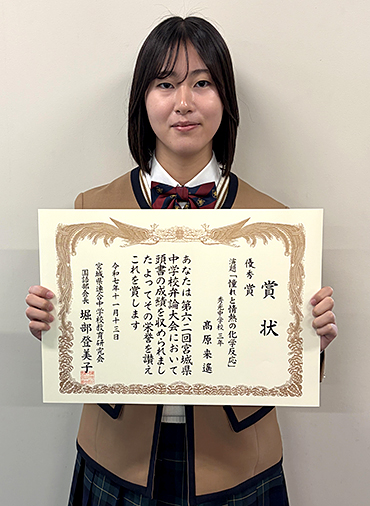 賞状
優秀賞
演題「憧れと情熱の化学反応」
秀光中学校 三年
髙原来遙
あなたは第六二回宮城県
中学校弁論大会において
頭書の成績を収められまし
たよってその栄誉を讃え
これを賞します
令和七年十一月十三日
宮城県連合中学校教育研究会
国語部会長 堀部登美子